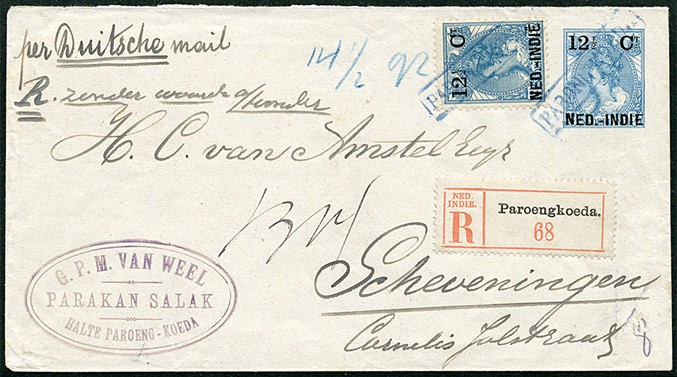 per Duitsche mail
14 1/2 gr
12½ Ct
NED.-INDIË
12½ Ct
NED.-INDIË
R. zonder waarde
H. C. van Amstel Eszr
NED. INDIE.
R
Paroengkoeda.
68
Scheveningen
Cornelis Jolstraat
G. P. M. VAN WEEL
PARAKAN SALAK
HALTE PAROENG-KOEDA